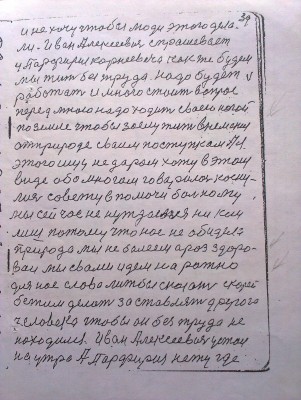 39
и не хочу чтобы люди этого дела
ли. Иван Алексеевич спрашевает
у Парфирия Корнеевича как же будем
мы жить без труда. надо будет
работат и много стоит встрое
перед мною надо ходить своею ногой
по земле чтобы заслужит в
от природе своим поступком я и
этого ищу не даром хожу в этом
виде обо многом говорилось косну
лися совету в помочи больному
мы сейчас не нуждаемся ни ким
потому что нас не обидела
природа мы не болеем а раз здоро
ваи мы свами идем на ратно
для нас слово литбы сказат скорей
бежим делат заставлят другого
человека чтобы он без труда не
находился. Иван Алексеевич устои
на утро А Парфирия нету где